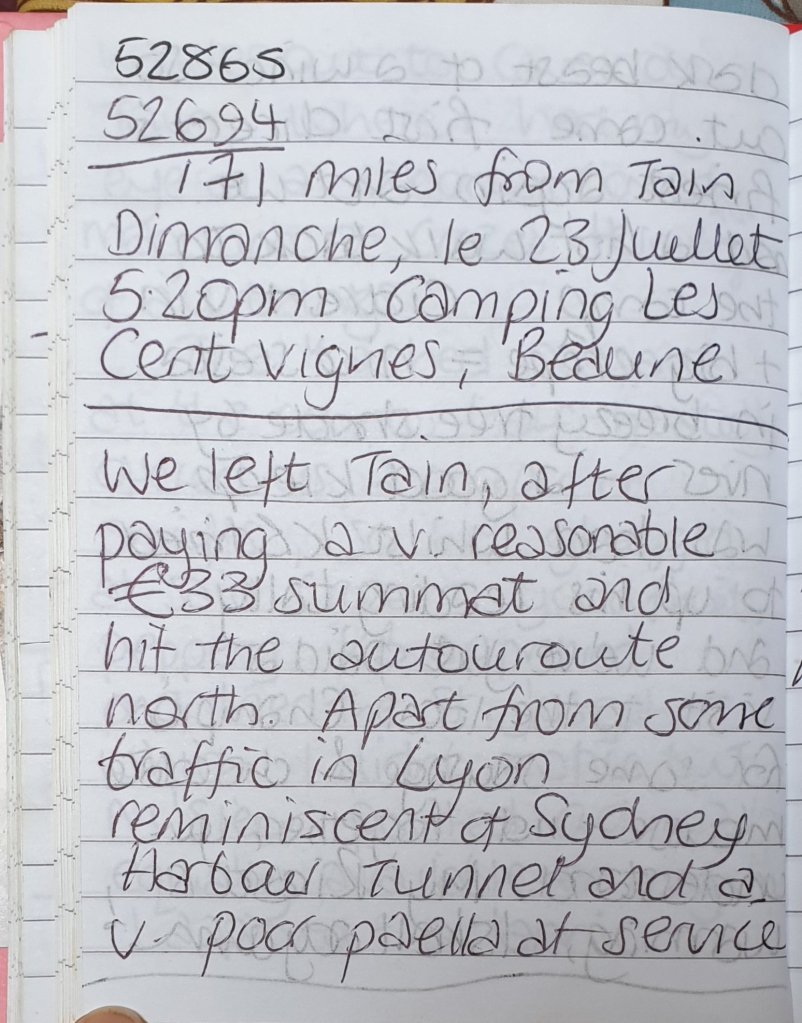 52865
52694
171 miles from Tain
Dimanche, le 23 Juellet
5.20pm Camping Les
Cent Vignes, Beaune
We left Tain, after
paying a v. reasonable
€33 summat and
hit the autouroute
north. Apart from some
traffic in Lyon
reminiscent of Sydney
Harbour Tunnel and a
v. poor paella at service